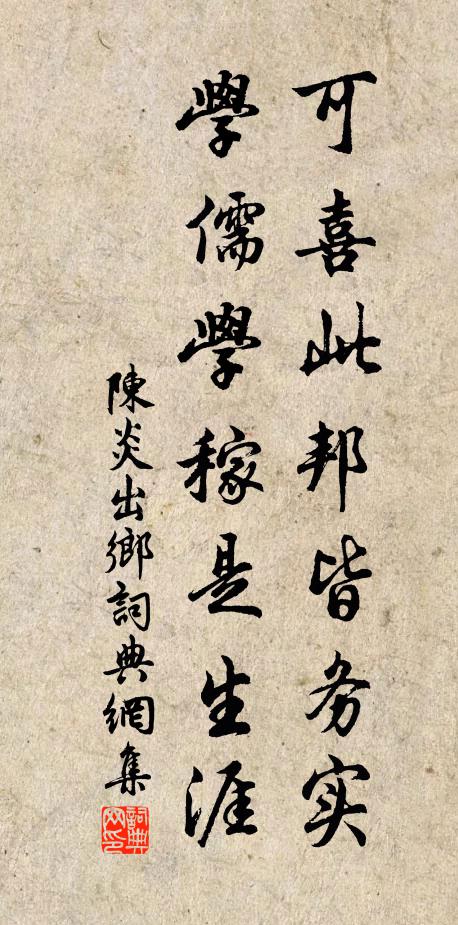 可喜此邦皆务实
學儒學稼是生涯
陳炎出鄉詞典網集
詞典網印